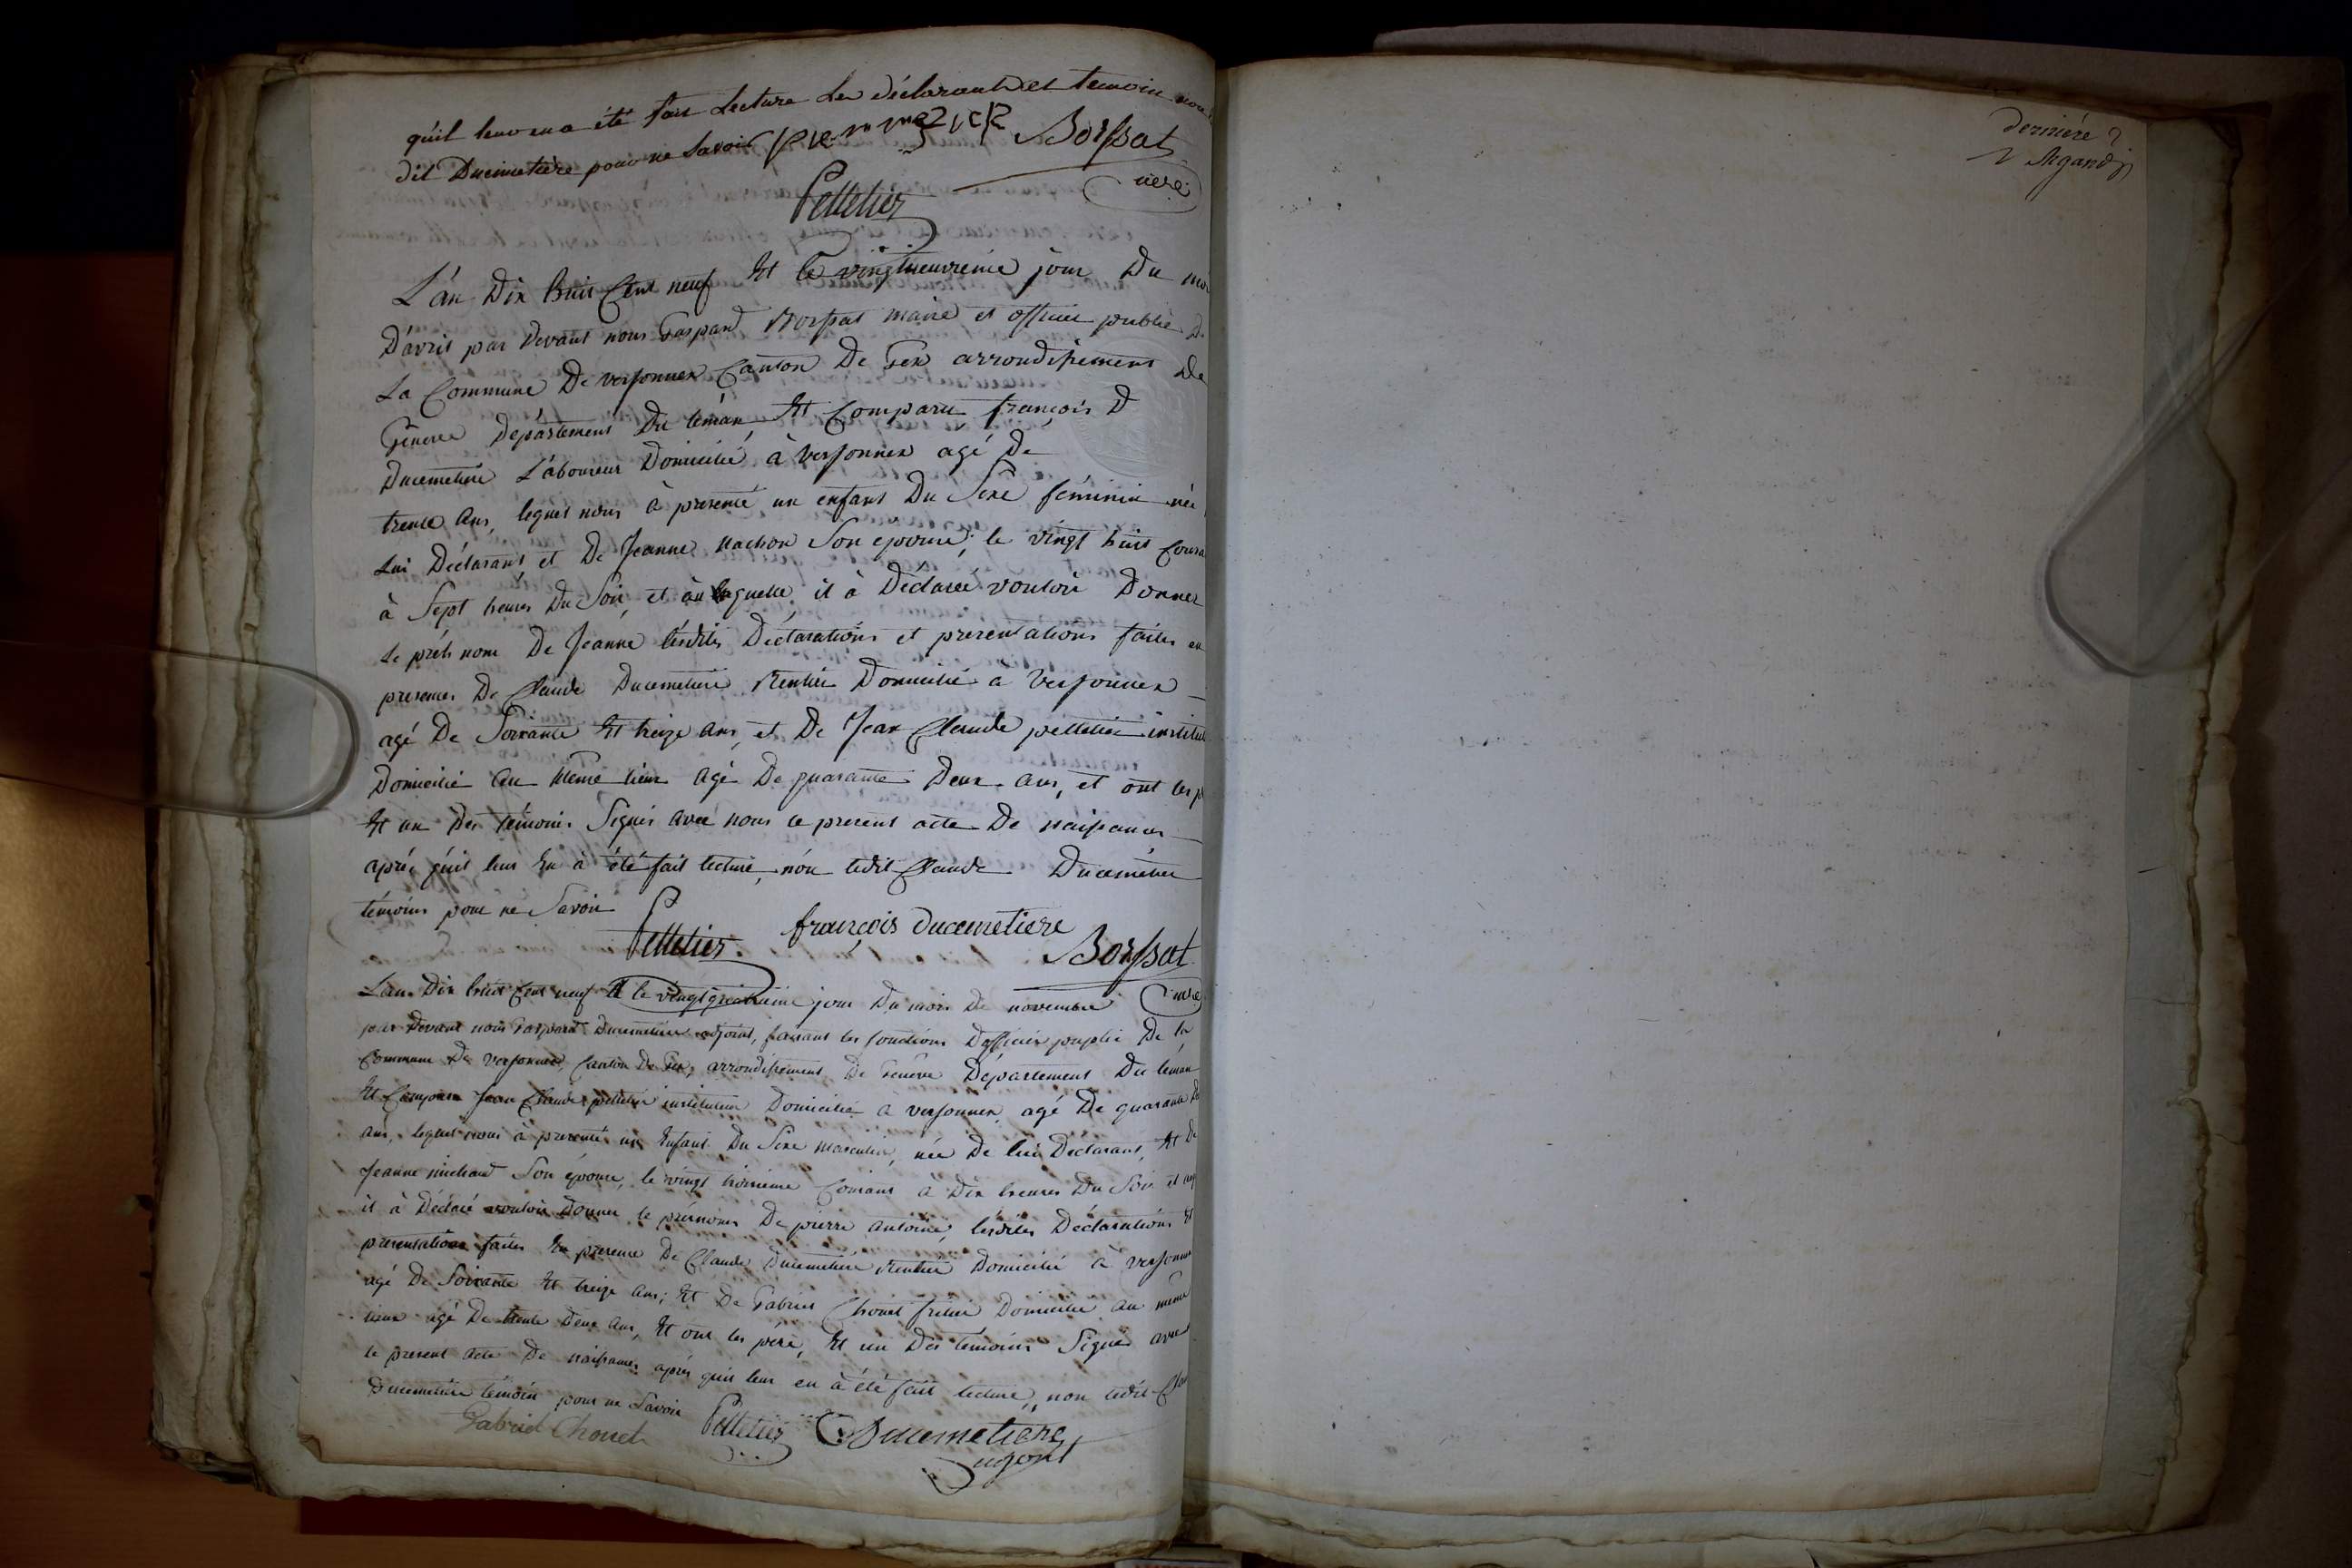 qu'il leur en a été fait Lecture Les déclarants et temoin non
dit Ducimetière pour ne Savoir Borssat
mere
Pelletier
L'án Dix huit Cent neuf Et le vingtneuvieme jour Du moi
D'avril par Devant nous Gaspard Borssat maire et officier public D
La Commune De versonnex Canton De Gex arrondissement De
Géneve Départemens Du léman, Et Comparu françois D
Ducemetiere Laboureur Domicilié à versonnex agé De
trente ans, lequel nous à presenté un enfant Du Sexe féminin née
Lui Déclarant, et De Jeanne nachon Son epouse, le vingt huit Coura
à Sept heures Du Soir, et àu laquelle, il à Déclaré vouloir Donner
Le préh nom De Jeanne lésdites Déclarations et presentations faites en
presence De Claude Ducemetiere Rentier Domicilié à Versonnex
agé De Soixante Et treize ans, et De Jean Claude pelletier institut
Domicilié au même lieu agé De quarante Deux ans, et ont les p
Et un Des témoins Signés avec nous le present acte De naissances
aprés qu'il leur En à été fait lecture, nón ledit Claude Ducemetier
témoins pour ne Savoir
Pelletier françois ducemetiere Borssat
L'an Dix huit Cent neuf Et le jour Du mois De novembre mere
par Devant nous Gaspard Ducemetiere adjoint, faisant les fonctions D'officier puplic De la
Commune De Versonnex, Canton De Gex, arrondissement De Genève Département Du léman
Et Comparu Jean Claude pelletier instituteur Domicilié à versonnex agé De quarante De
ans, lequel nous à presenté un Enfant Du Sexe masculin, née De lui Déclarant, Et De
Jeanne michaud Son épouse, le vingt troisieme Courant à Dix heures Du Soir et auq
il à Déclaré vouloir Donner le prénoms De pierre antoine, lésdites Déclarations Et
presentations faites En presence De Claude Ducemetiere Rentier Domicilié à versonne
agé De Soixante Et treize ans; Et De Gabriel Chouet Domicilié au même
lieux agé De trente Deux ans, Et ont les pére, Et un Des témoins Signés avec
le present acte De naissances aprés qu'il leur en à été fait lecture, non ledit Clau
Ducemetiere témoin pour ne Savoir
Gabriel Chouet Pelletier Ducemetiere
adjoint
derniére